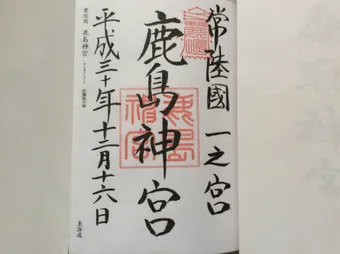 常陸國 一之宮
鹿島神宮
平成三十年十二月十六日
常陸国 鹿島神宮
東海道